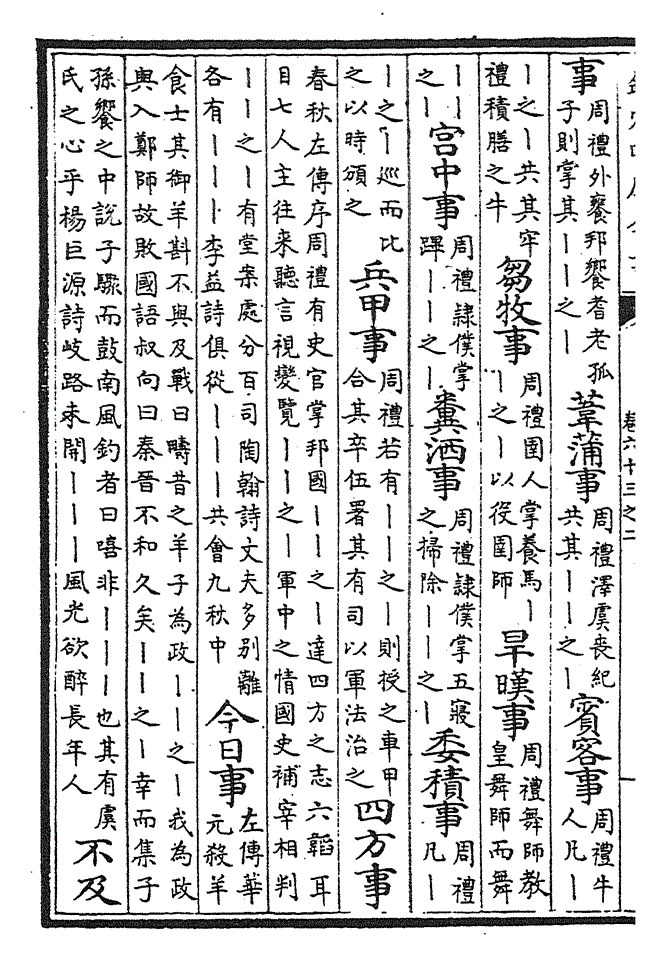 卷六十三之二
事周禮外饔邦饗耆老孤子則掌其丨丨之丨葦蒲事周禮澤虞喪紀共其丨丨之丨賓客事周禮牛人凡丨
丨之丨共其牢禮積膳之牛芻牧事周禮圉人掌養馬丨丨之丨以役圉師旱暵事周禮舞師教皇舞師而舞
丨丨之丨宫中事周禮隸僕掌蹕丨丨之丨糞洒事周禮隸僕掌五寢之掃除丨丨之丨委積事周禮凡丨
丨之丨巡而比之以時頒之兵甲事周禮若有丨丨之丨則授之車甲合其卒伍署其有司以軍法治之四方事
春秋左傳序周禮有史官掌邦國丨丨之丨達四方之志六韜耳目七人主往来聽言視變覽丨丨之丨軍中之情國史補宰相判
丨丨之丨有堂案處分百司陶翰詩丈夫多别離各有丨丨丨李益詩俱從丨丨丨共會九秋中今日事左傳華元殺羊
食士其御羊斟不與及戰曰疇昔之羊子為政丨丨之丨我為政與入鄭師故敗國語叔向曰秦晉不和久矣丨丨之丨幸而集子
孫饗之中說子驟而鼓南風釣者曰嘻非丨丨丨也其有虞氏之心乎楊巨源詩岐路未開丨丨丨風光欲醉長年人不及